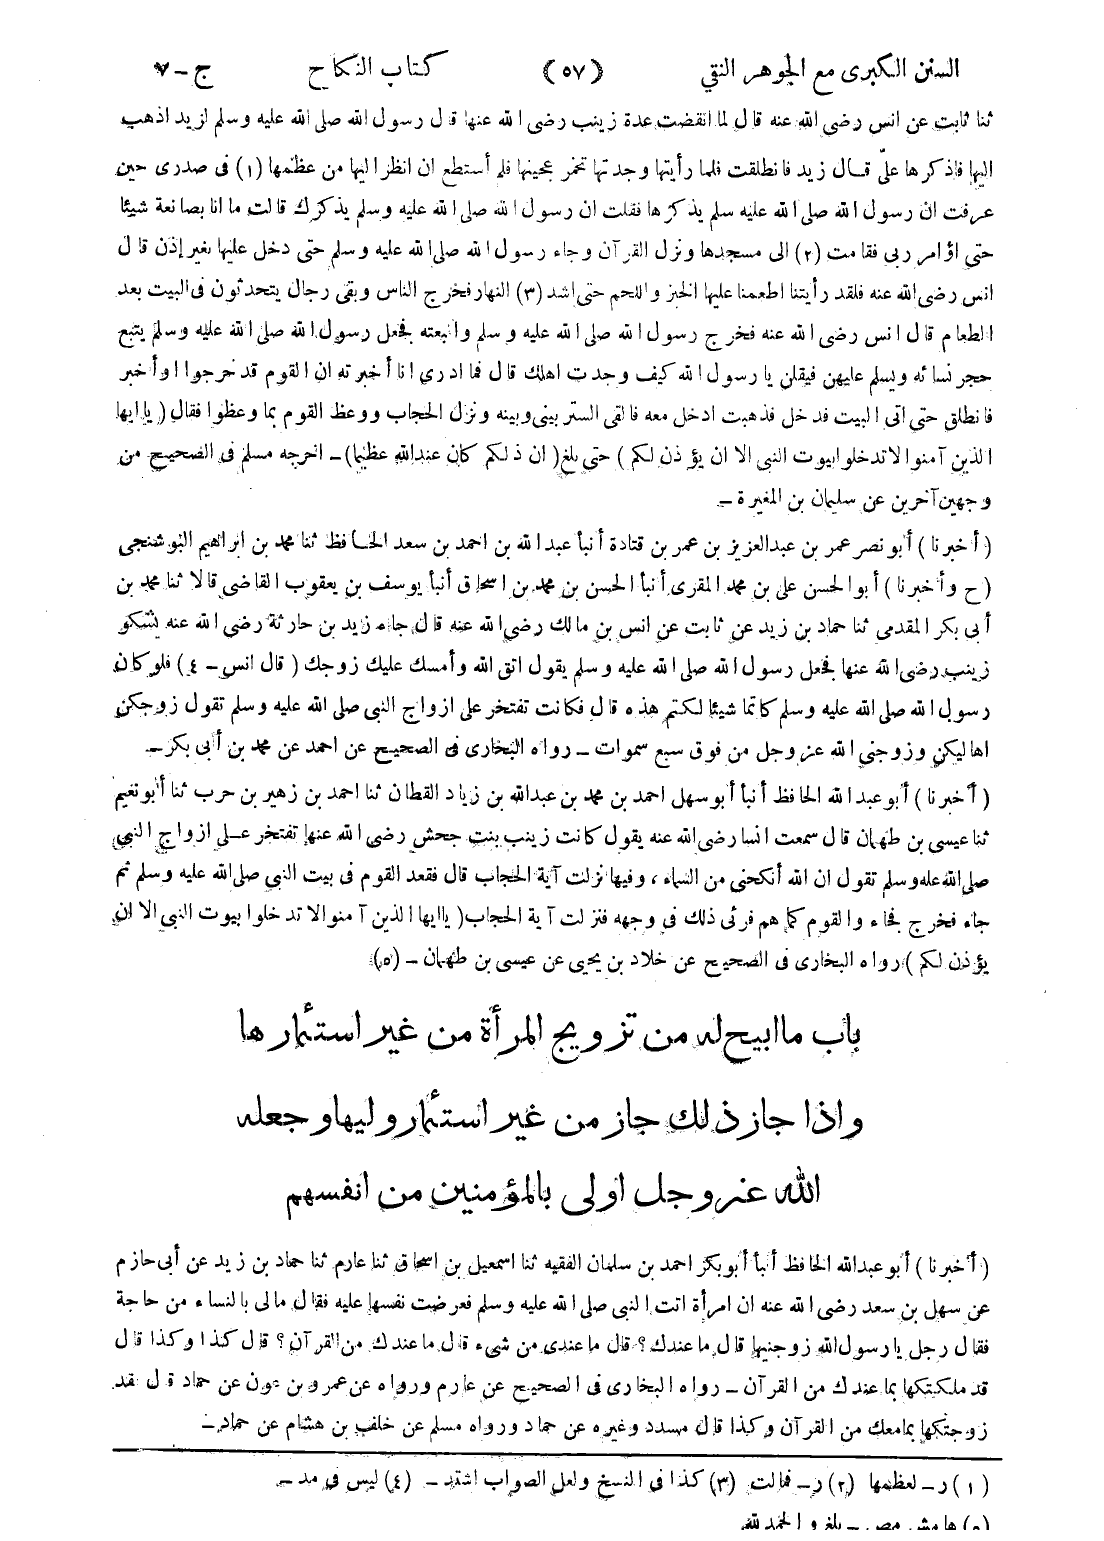 السنن الكبرى مع الجوهر النقي (٥٧) كتاب النكاح ج – ٧
ثنا ثابت عن انس رضى الله عنه قال لما انقضت عدة زينب رضى الله عنها قال رسول الله صلى الله عليه وسلم لزيد اذهب
اليها فاذكرها علىّ قال زيد فانطلقت فلما رأيتها وجدتها تخمر عجينها فلم أستطع ان انظر اليها من عظمها (١) فى صدرى حين
عرفت ان رسول الله صلى الله عليه سلم يذكرها فقلت ان رسول الله صلى الله عليه وسلم يذكرك قالت ما انا بصانعة شيئا
حتى اؤامر ربى فقامت (٢) الى مسجدها ونزل القرآن وجاء رسول الله صلى الله عليه وسلم حتى دخل عليها بغير إذن قال
انس رضى الله عنه فلقد رأيتنا اطعمنا عليها الخبز واللحم حتى اشد (٣) النهار فخرج الناس وبقى رجال يتحدثون فى البيت بعد
الطعام قال انس رضى الله عنه فخرج رسول الله صلى الله عليه وسلم واتبعته فجعل رسول الله صلى الله عليه وسلم يتبع
حجر نسائه ويسلم عليهن فيقلن يا رسول الله كيف وجدت اهلك قال فما ادرى انا أخبرته ان القوم قد خرجوا او أخبر
فانطلق حتى اتى البيت فدخل فذهبت ادخل معه فالقى الستر بينى وبينه ونزل الحجاب ووعظ القوم بما وعظوا فقال ( يا ايها
الذين آمنوا لا تدخلوا بيوت النبى الا ان يؤذن لكم ) حتى بلغ ( ان ذلكم كان عند الله عظيما ) – اخرجه مسلم فى الصحيح من
وجهين آخرين عن سليمان بن المغيرة –
( أخبرنا ) أبو نصر عمر بن عبدالعزيز بن عمر بن قتادة أنبأ عبد الله بن احمد بن سعد الحافظ ثنا محمد بن ابراهيم البوشنجى
( ح وأخبرنا ) أبو الحسن على بن محمد المقرى أنبأ الحسن بن محمد بن اسحاق أنبأ يوسف بن يعقوب القاضى قالا ثنا محمد بن
أبى بكر المقدمى ثنا حماد بن زيد عن ثابت عن انس بن مالك رضى الله عنه قال جاء زيد بن حارثة رضى الله عنه يشكو
زينب رضى الله عنها فجعل رسول الله صلى الله عليه وسلم يقول اتق الله وأمسك عليك زوجك ( قال انس – ٤ ) فلو كان
رسول الله صلى الله عليه وسلم كاتما شيئا لكتم هذه قال فكانت تفتخر على ازواج النبى صلى الله عليه وسلم تقول زوجكن
اهاليكن وزوجنى الله عزوجل من فوق سبع سموات – رواه البخارى فى الصحيح عن احمد عن محمد بن أبى بكر –
( أخبرنا ) أبو عبد الله الحافظ أنبأ أبو سهل احمد بن محمد بن عبدالله بن زياد القطان ثنا احمد بن زهير بن حرب ثنا أبو نعيم
ثنا عيسى بن طهمان قال سمعت انسا رضى الله عنه يقول كانت زينب بنت جحش رضى الله عنها تفتخر على ازواج النبى
صلى الله عله وسلم تقول ان الله أنكحنى من السماء ، وفيها نزلت آية الحجاب قال فقعد القوم فى بيت النبى صلى الله عليه وسلم ثم
جاء فخرج فجاء والقوم كما هم فرئى ذلك فى وجهه فنزلت آية الحجاب ( يا ايها الذين آمنوا لا تدخلوا بيوت النبى الا ان
يؤذن لكم ) رواه البخارى فى الصحيح عن خلاد بن يحيى عن عيسى بن طهمان – (٥)
باب ما ابيح له من تزويج المرأة من غير استئمارها
واذا جاز ذلك جاز من غير استئمار وليها وجعله
الله عزوجل اولى بالمؤمنين من انفسهم
( أخبرنا ) أبو عبدالله الحافظ أنبأ أبو بكر احمد بن سلمان الفقيه ثنا اسمعيل بن اسحاق ثنا عارم ثنا حماد بن زيد عن أبى حازم
عن سهل بن سعد رضى الله عنه ان امرأة اتت النبى صلى الله عليه وسلم فعرضت نفسها عليه فقال مالى بالنساء من حاجة
فقال رجل يا رسول الله زوجنيها قال ما عندك ؟ قال ما عندى من شىء قال ما عندك من القرآن ؟ قال كذا وكذا قال
قد ملكتكها بما عندك من القرآن – رواه البخارى فى الصحيح عن عارم ورواه عن عمرو بن عون عن حماد قال فقد
زوجتكها بما معك من القرآن وكذا قال مسدد وغيره عن حماد ورواه مسلم عن خلف بن هشام عن حماد –
(١) ر – لعظمها (٢) ر – فمالت (٣) كذا فى النسخ ولعل الصواب اشتد – (٤) ليس فى مد –
(٥) هامش مص – بلغ والحمد لله